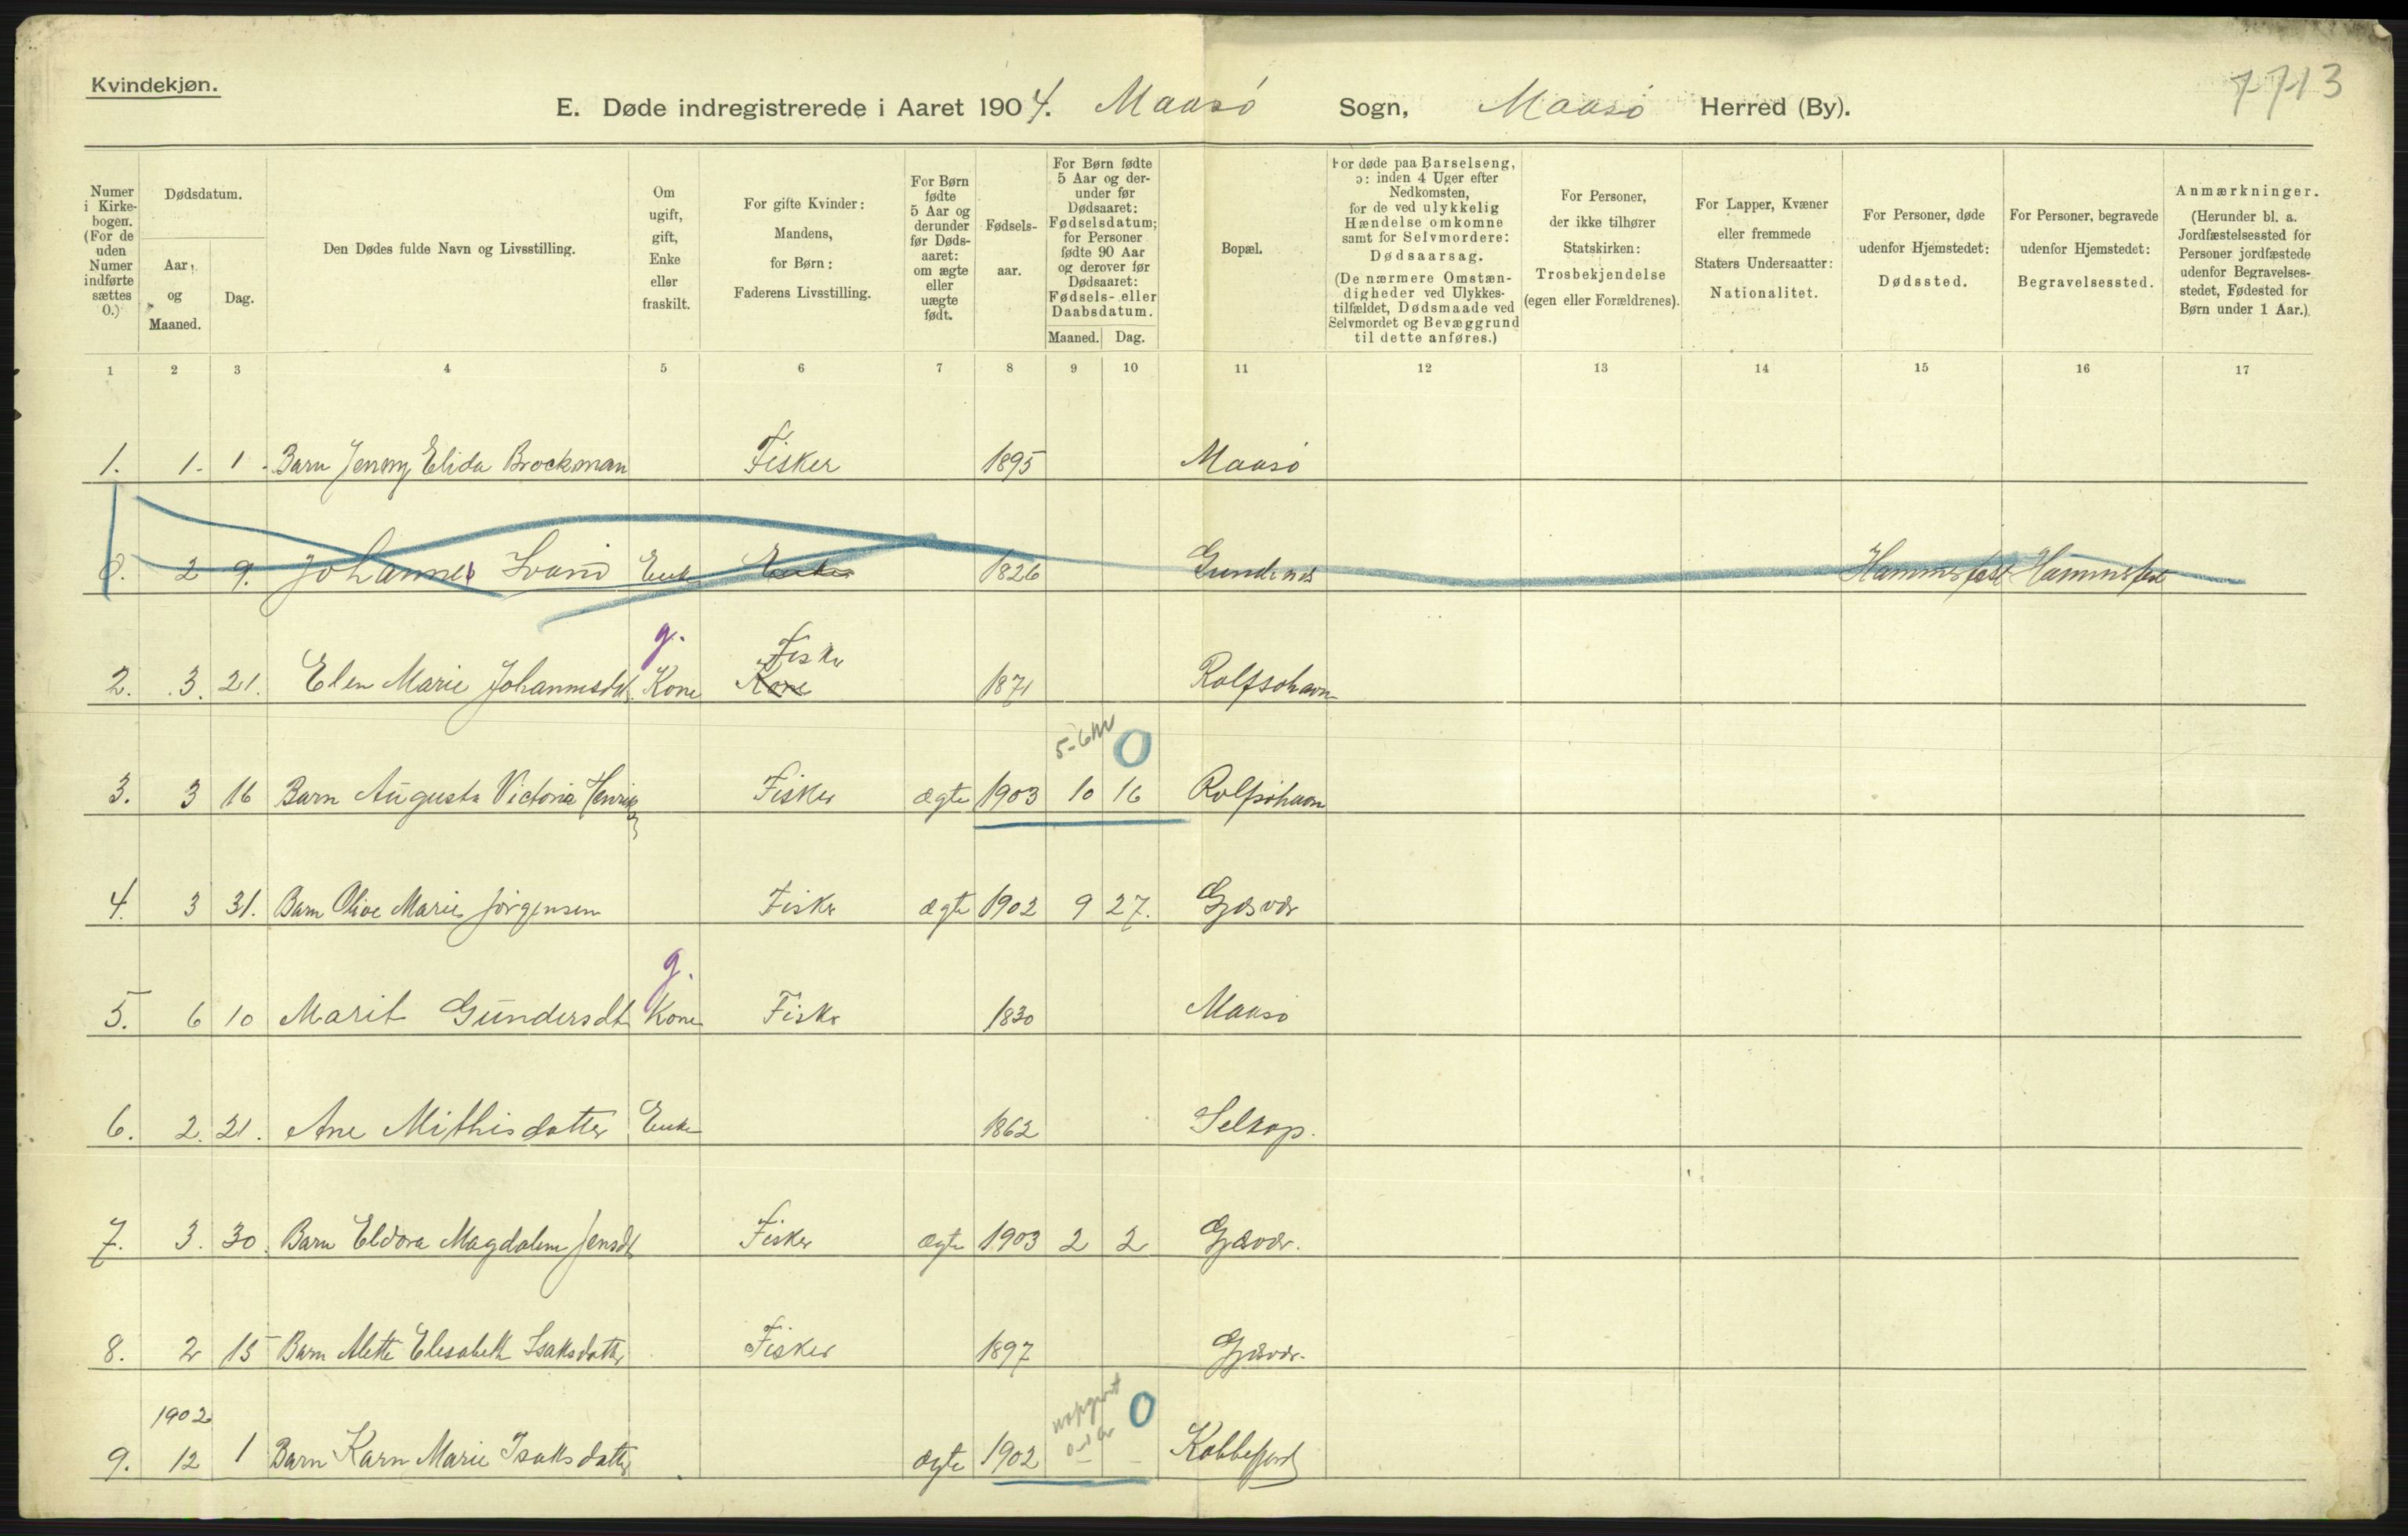 Kvindekjøn.
7713
E. Døde indregistrerede i Aaret 1904. Maasö Sogn, Maasö Herred (By).
Numer i Kirkebogen. (For de uden Numer indførte sættes 0.)
Dødsdatum.
Aar og Maaned.
Dag.
Den Dødes fulde Navn og Livsstilling.
Om ugift, gift, Enke eller fraskilt.
For gifte Kvinder: Mandens, for Børn: Faderens Livsstilling.
For Børn fødte 5 Aar og derunder før Dødsaaret: om ægte eller uægte født.
Fødselsaar.
For Børn fødte 5 Aar og derunder før Dødsaaret: Fødselsdatum; for Personer fødte 90 Aar og derover før Dødsaaret: Fødsels- eller Daabsdatum.
Maaned. Dag.
Bopæl.
For døde paa Barselseng, ɔ: inden 4 Uger efter Nedkomsten, for de ved ulykkelig Hændelse omkomne samt for Selvmordere: Dødsaarsag. (De nærmere Omstændigheder ved Ulykkestilfældet, Dødsmaade ved Selvmordet og Bevæggrund til dette anføres.)
For Personer, der ikke tilhører Statskirken: Trosbekjendelse (egen eller Forældrenes).
For Lapper, Kvæner eller fremmede Staters Undersaatter: Nationalitet.
For Personer, døde udenfor Hjemstedet: Dødssted.
For Personer, begravede udenfor Hjemstedet: Begravelsessted.
Anmærkninger. (Herunder bl. a. Jordfæstelsessted for Personer jordfæstede udenfor Begravelsesstedet, Fødested for Børn under 1 Aar.)
1 2 3 4 5 6 7 8 9 10 11 12 13 14 15 16 17
1. 1. 1. Barn Jenny Elida Brockman Fisker 1895 Maasö
0. 2 9. Johannes Enke Enke 1826 Hammerfest Hammerfest
g. Fisker
2. 3. 21. Elen Marie Johannesdt. Kone Kone 1871 Rolfsohavn
5-6 M 0
3. 3 16 Barn Augusta Victoria Henriksen Fisker ægte 1903 10 16 Rolfsöhavn
4. 3 31. Barn Olive Marie Jörgensen Fisker ægte 1902 9 27. Gjæsvær
g.
5. 6 10 Marit Gundersdt Kone Fisker 1830 Maasö
6. 2. 21. Ane Mithisdatter Enke 1862 Selkop.
7. 3. 30. Barn Eldora Magdalene Jensdt Fisker ægte 1903 2 2 Gjæsvær.
8. 2 15 Barn Alette Elisabeth Isaksdatter Fisker 1897 Gjæsvær.
1902 uopgivet 0
9. 12 1 Barn Karn Marie Isaksdatter ægte 1902 – – Kobbefjord